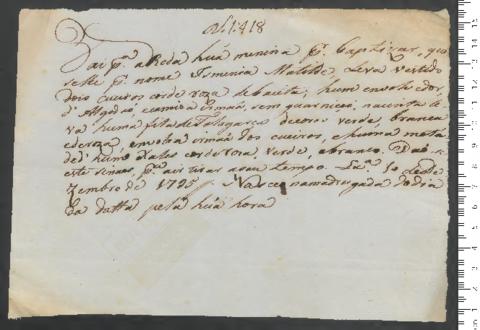 N. 1418
Vai p.ª a Roda hua menina p.ª Captizar, que
selhe p. nome Ismenia Matilde, Leva vestido
dois cueiros cor de roza de baeta; hum envolvedor,
d' Algodaõ, camiza irmaã, sem guarniçaõ, na cinta le
va huma fita de Talagarça de cores verde, branca
e de roza, envolta irmaã dos cueiros, e huma meta
de d' hum
cor de roza verde, e branco. Daõ-se
este sinaes, p.ª a ir tirar a seu tempo. Lx.ª 10 de De
zembro de 1795 // Nasceo na madrugada do dia
da datta pela huã hora